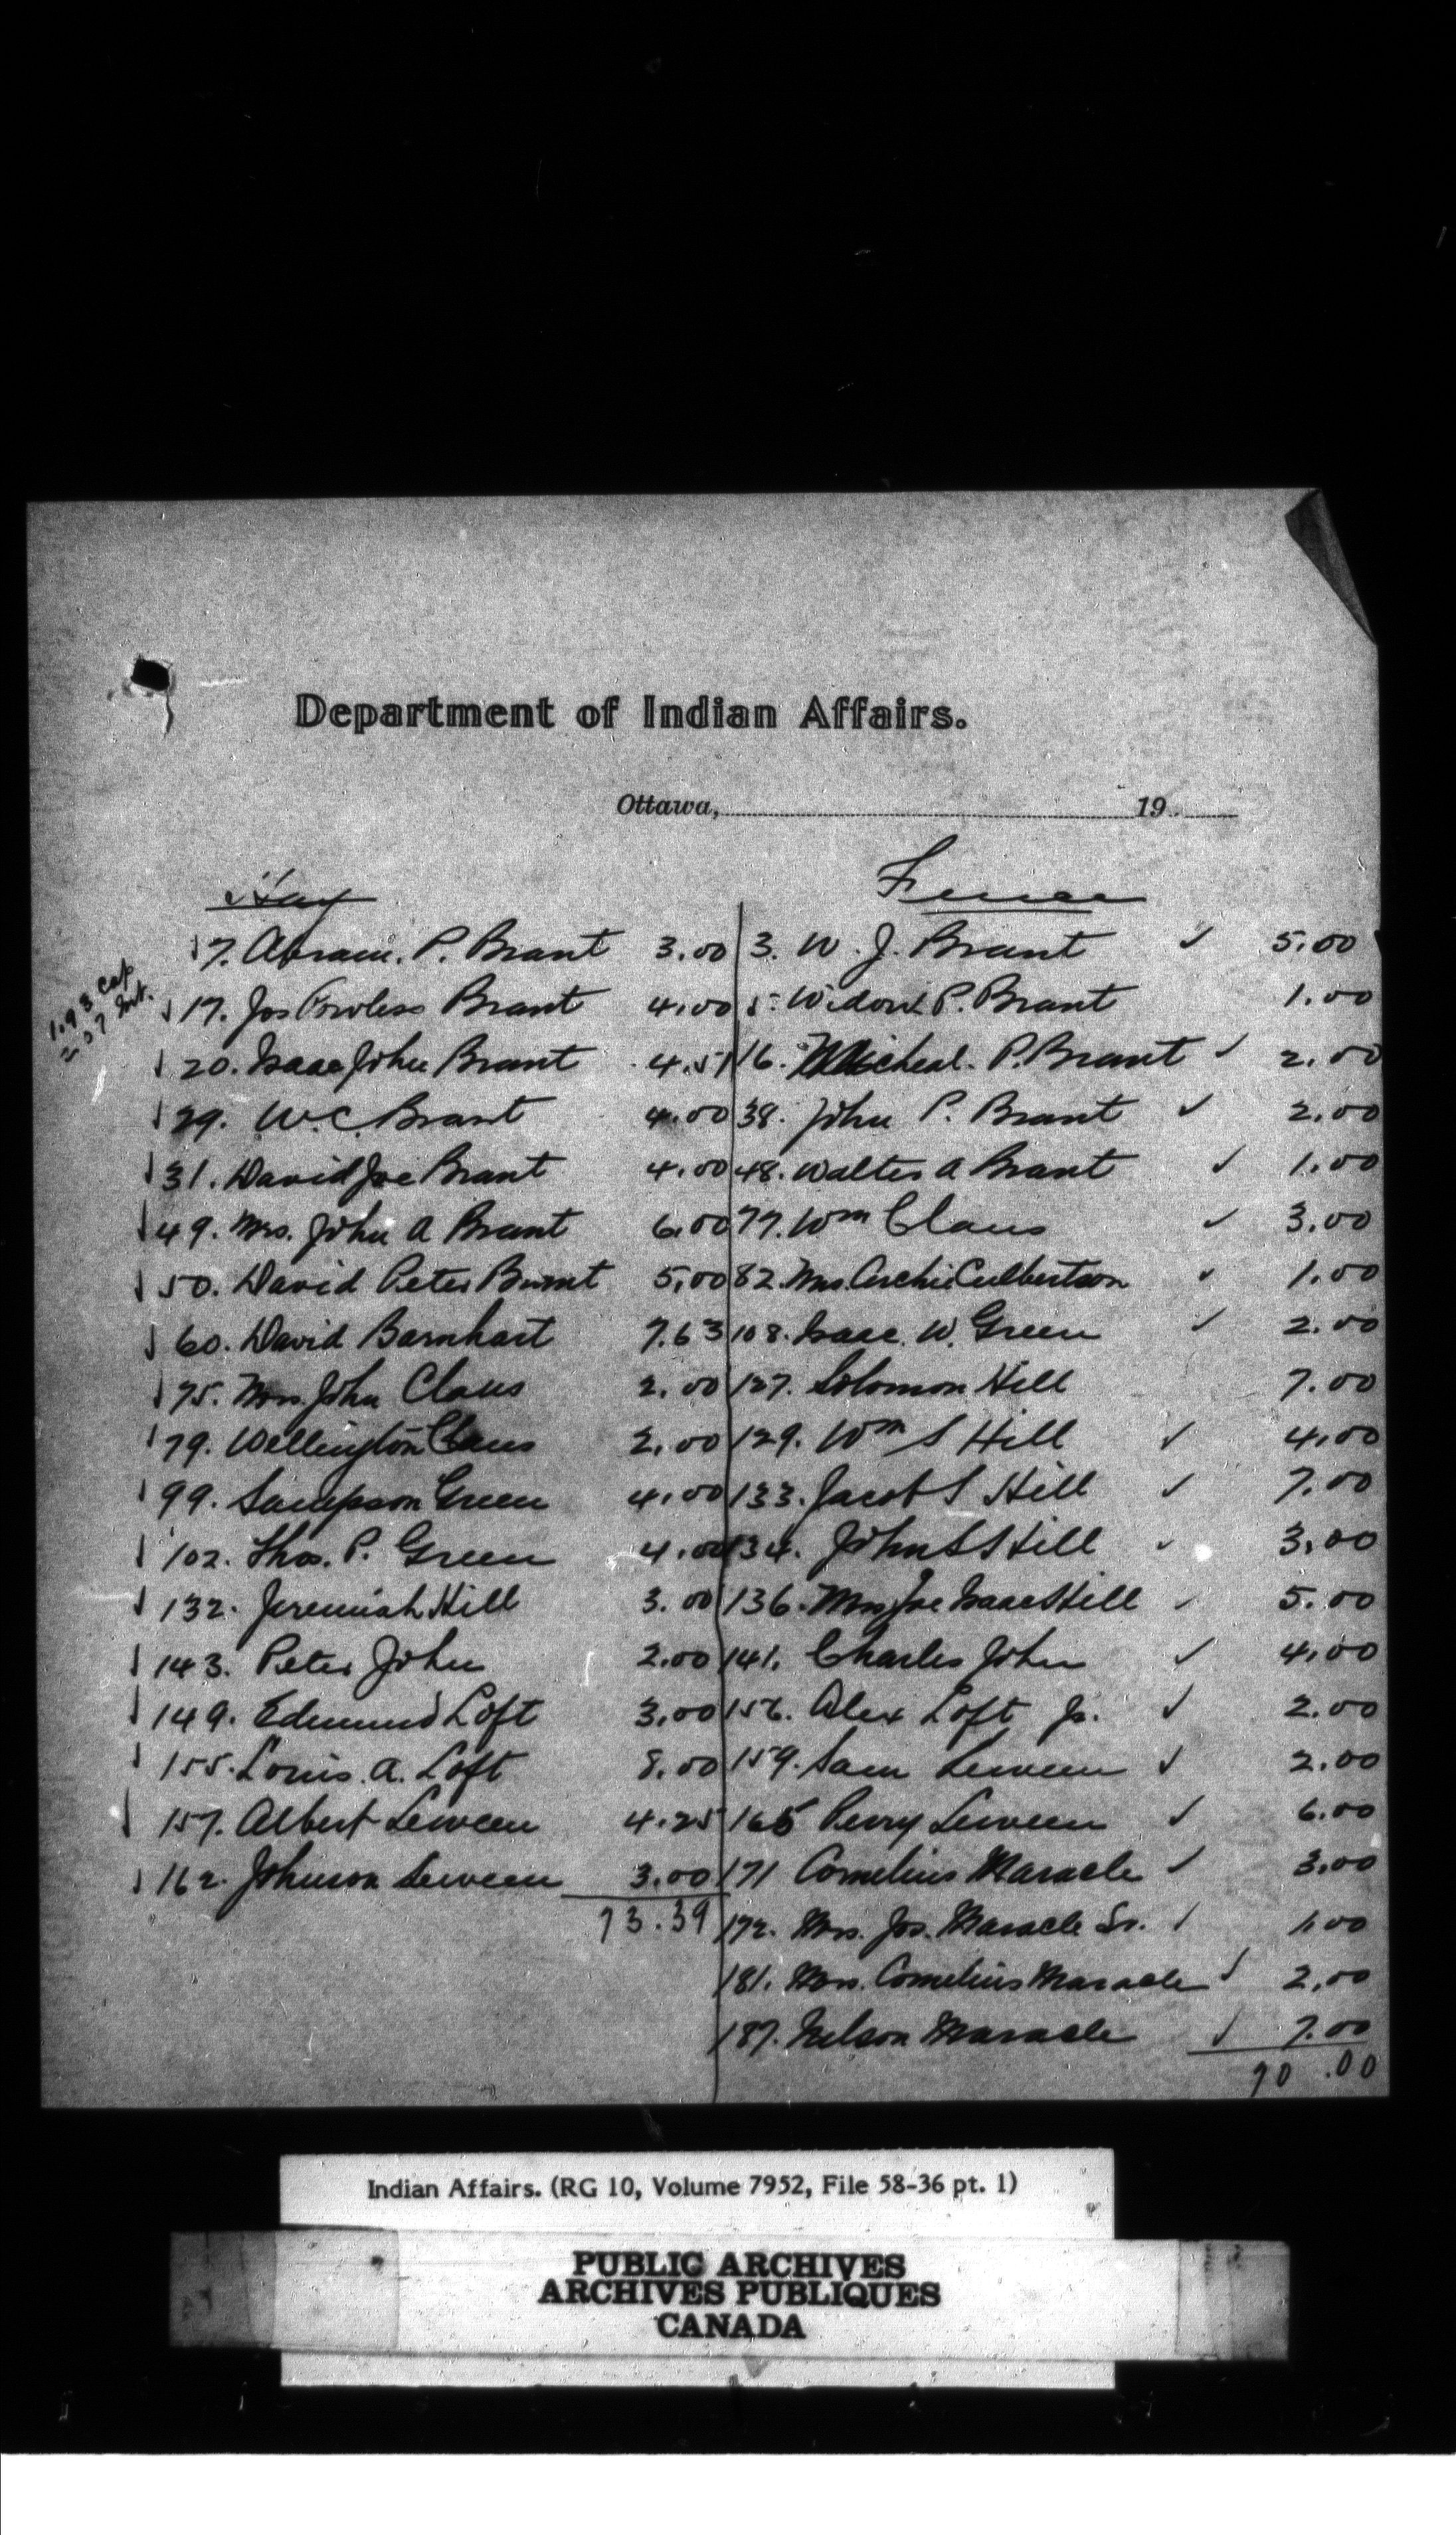 Department of Indian Affairs.
Ottawa, 19
Hay
7. Abram. P. Brant 3.00
17. Jos Powless Brant 4.00
20. Isaac John Brant 4.51
29. W. C. Brant 4.00
31. David Joe Brant 4.00
49. Mrs. John A Brant 6.00
50. David Peter Brant 5.00
60. David Barnhart 7.63
75. Mrs. John Claus 2.00
79. Wellington Claus 2.00
99. Sampson Green 4.00
102. Thos. P. Green 4.00
132. Jeremiah Hill 3.00
143. Peter John 2.00
149. Edmund Loft 3.00
155. Louis. A. Loft 8.00
157. Albert Leween 4.25
162. Johnson Leween 3.00
73.39
1.93 Cap
2.07 Int.
Fence
3. W. J. Brant ✓ 5.00
5. Widow P. Brant 1.00
16. Micheal. P. Brant ✓ 2.00
38. John P. Brant ✓ 2.00
48. Walter A Brant ✓ 1.00
77. Wm Claus ✓ 3.00
82. Mrs. Archie Culbertson ✓ 1.00
108. Isaac. W. Green ✓ 2.00
127. Solomon Hill 7.00
129. Wm S Hill ✓ 4.00
133. Jacob S Hill ✓ 7.00
134. John S Hill ✓ 3.00
136. Mrs Joe Isaac Hill ✓ 5.00
141. Charles John ✓ 4.00
156. Alex Loft Jr. ✓ 2.00
159. Sam Leween ✓ 2.00
165 Perry Leween ✓ 6.00
171 Cornelius Maracle ✓ 3.00
172. Mrs. Jos. Maracle Sr. ✓ 1.00
181. Mrs. Cornelius Maracle ✓ 2.00
187. Nelson Maracle ✓ 7.00
70.00
Indian Affairs. (RG 10, Volume 7952, File 58-36 pt. 1)
PUBLIC ARCHIVES
ARCHIVES PUBLIQUES
CANADA